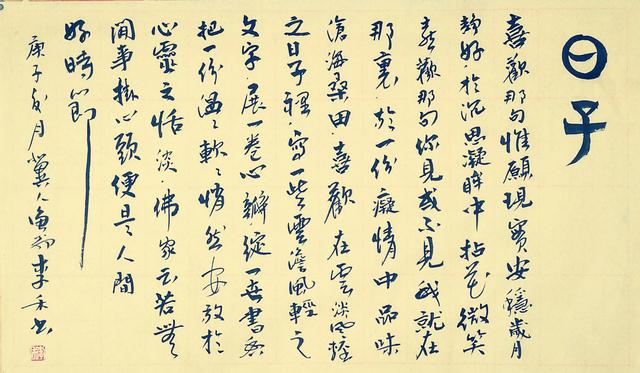 日子
喜歡那句惟願現實安穩歲月
静好於沉思凝眸中拈花微笑
喜歡那句你見或不見我就在
那裏·於一份癡情中品味
滄海桑田·喜歡在雲淡风輕
之日子裡·寫一些雲澹風輕之
文字·展一卷心瓣綻一世書香
把一份温々軟々悄然安放於
心靈之恬淡·佛家云若無
閒事掛心頭便是人間
好時節
庚子月冀人李禾书